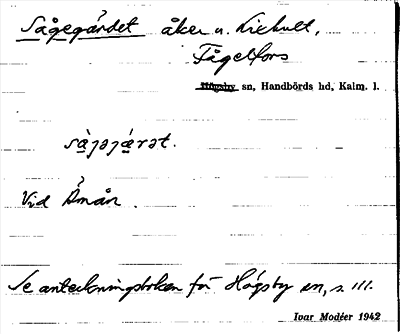 Sågegärdet åker u. Kiekult,
Fågelfors
Högsby sn, Handbörds hd, Kalm. l.
sàjəjǻrət.
Vid Ånån.
Se anteckningsboken för Högsby sn, s. 111.
Ivar Modéer 1942